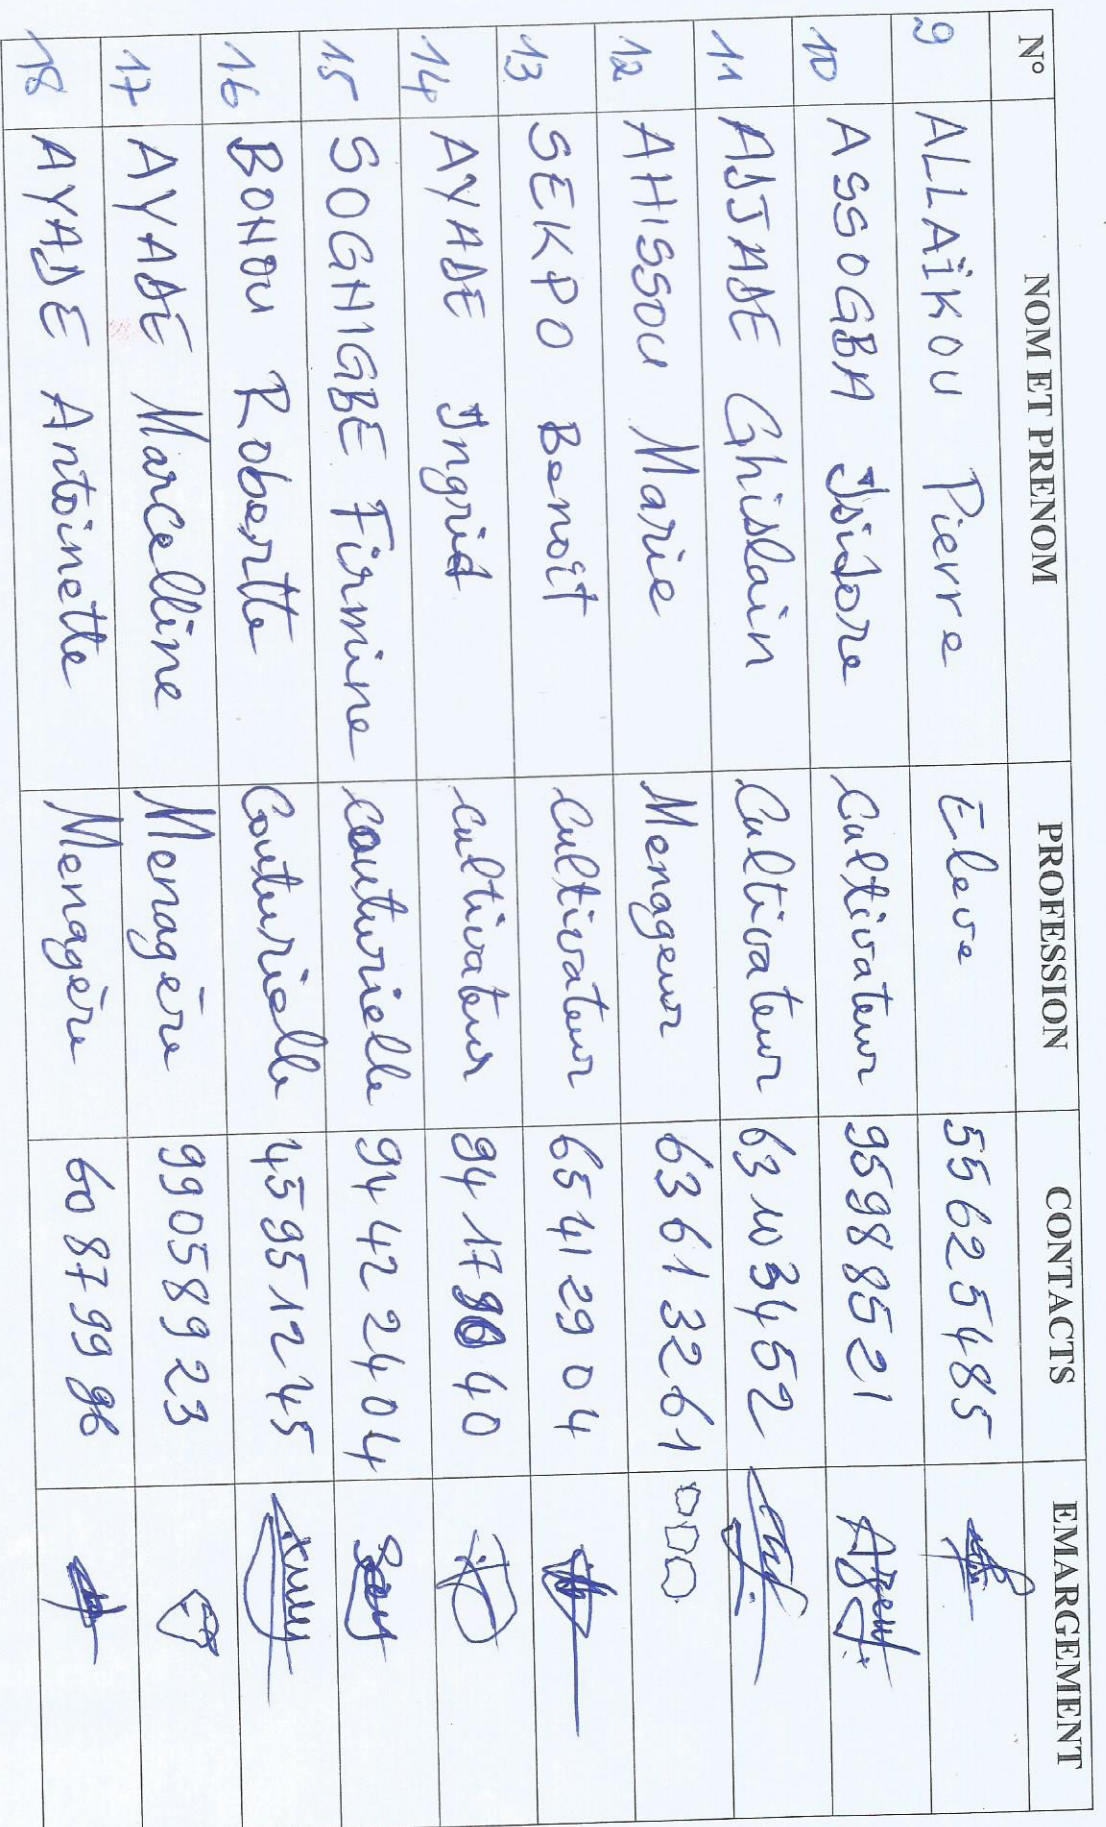 N° NOM ET PRENOM PROFESSION CONTACTS EMARGEMENT
9 ALLAÏKOU Pierre Eleve 55625485
10 ASSOGBA Isidore Cultivateur 95988521
11 ADJADE Ghislain Cultivateur 63103452
12 AHISSOU Marie Menageur 63613261
13 SEKPO Benoît Cultivateur 65412904
14 AYADE Ingrid Cultivateur
15 SOGHIGBE Firmine couturielle 94422404
16 BONOU Robertte Couturielle 45951245
17 AYADE Marcelline Menagère 99058923
18 AYADE Antoinette Menagère 60879996